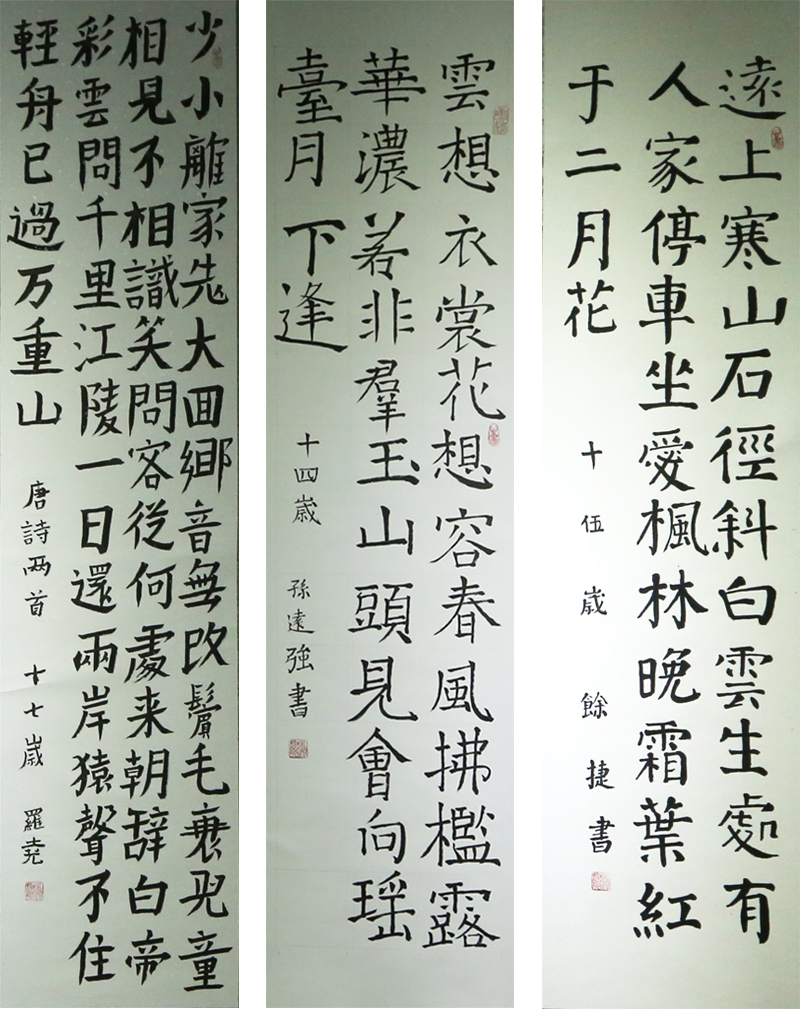 遠上寒山石徑斜白雲生處有
人家停車坐愛楓林晚霜葉紅
于二月花 十伍歲 餘捷書
雲想衣裳花想容春風拂檻露
華濃若非羣玉山頭見會向瑶
臺月下逢 十四歲 孫遠強書
少小離家先大囬鄉音無改鬢毛衰兒童
相見不相識笑問客從何處来朝辞白帝
彩雲問千里江陵一日還兩岸猿聲不住
輕舟已過万重山 唐詩两首 十七歲 羅堯